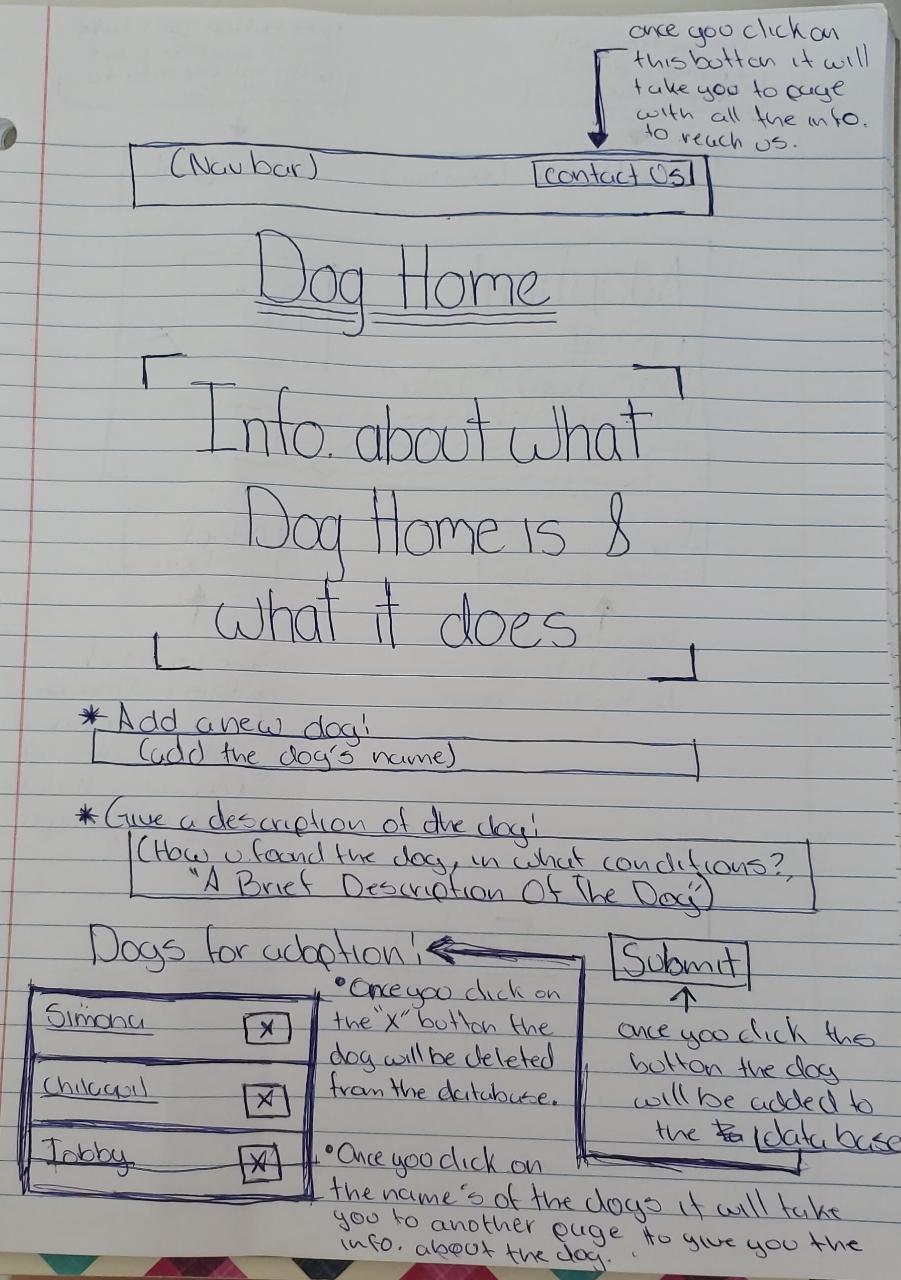 once you click on
this button it will
take you to page
with all the info.
to reach us.
(Navbar)
Contact Us
Dog Home
Info. about what
Dog Home is &
what it does
* Add a new dog!
(add the dog's name)
* Give a description of the dog!
(How u found the dog, in what conditions?,
"A Brief Description Of The Dog")
Dogs for adoption!
Submit
Simona
X
Chilaquil
X
Tobby
X
• Once you click on
the "X" button the
dog will be deleted
from the database.
once you click this
button the dog
will be added to
the database
• Once you click on
the name's of the dogs it will take
you to another page to give you the
info. about the dog.